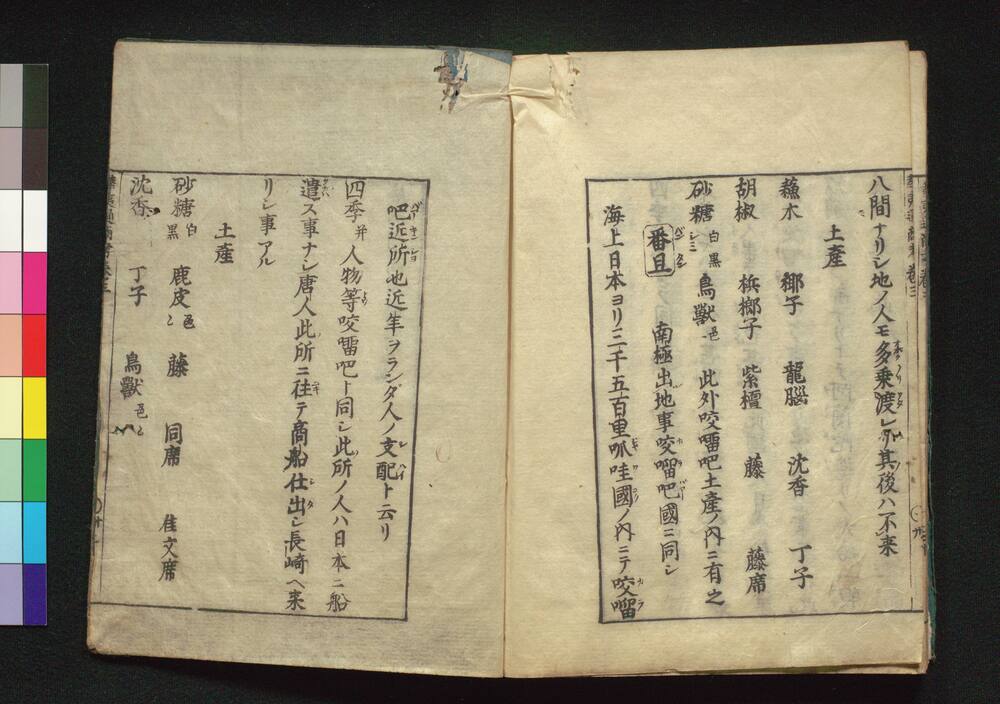 八間ナリシ地ノ人モ多乗渡レ𪜈其後ハ不来
土産
蘓木 椰子 龍腦 沈香 丁子
胡椒 梹榔子 紫檀 藤 藤席
砂糖白黒 鳥獸色〻 此外咬𠺕吧土産ノ内ニ有之
番旦 南極出地事咬𠺕吧國ニ同シ
海上日本ヨリ三千五百里呱哇國ノ内ニテ咬𠺕
吧近所也近年ヲランダ人ノ支配ト云リ
四季并人物等咬𠺕吧ト同シ此所ノ人ハ日本ニ船
遣ス事ナシ唐人此所ニ往テ商船仕出シ長崎ヘ来
リシ事アル
土産
砂糖白黒 鹿皮色〻 藤 同席 佳文席
沈香 丁子 鳥獸色〻